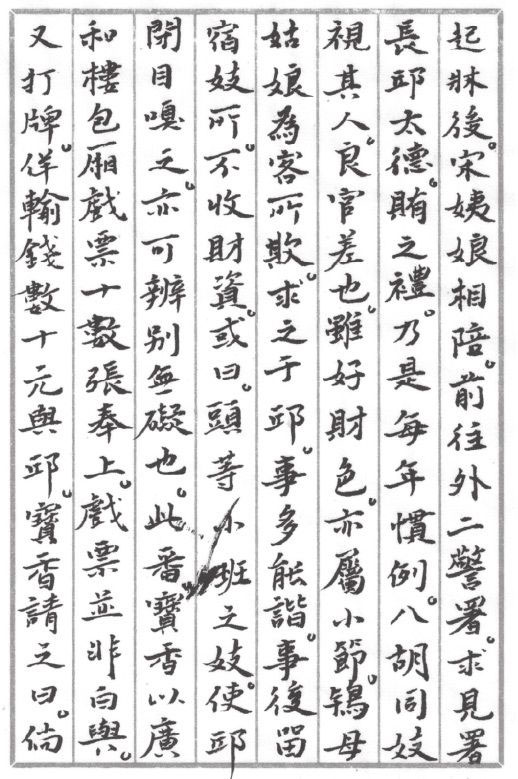 起牀後。宋姨娘相陪。前往外二警署。求見署
長邱太德。賄之禮。乃是每年慣例。八胡同妓
視其人。良官差也。雖好財色。亦屬小節。鴇母
姑娘為客所欺。求之于邱。事多能諧。事後留
宿妓所。不收財資。或曰。頭等小班之妓。使邱
閉目嗅之。亦可辨別無礙也。此番寶香以廣
和樓包廂戲票十數張奉上。戲票並非白與。
又打牌。佯輸錢數十元與邱。寶香請之曰。倘